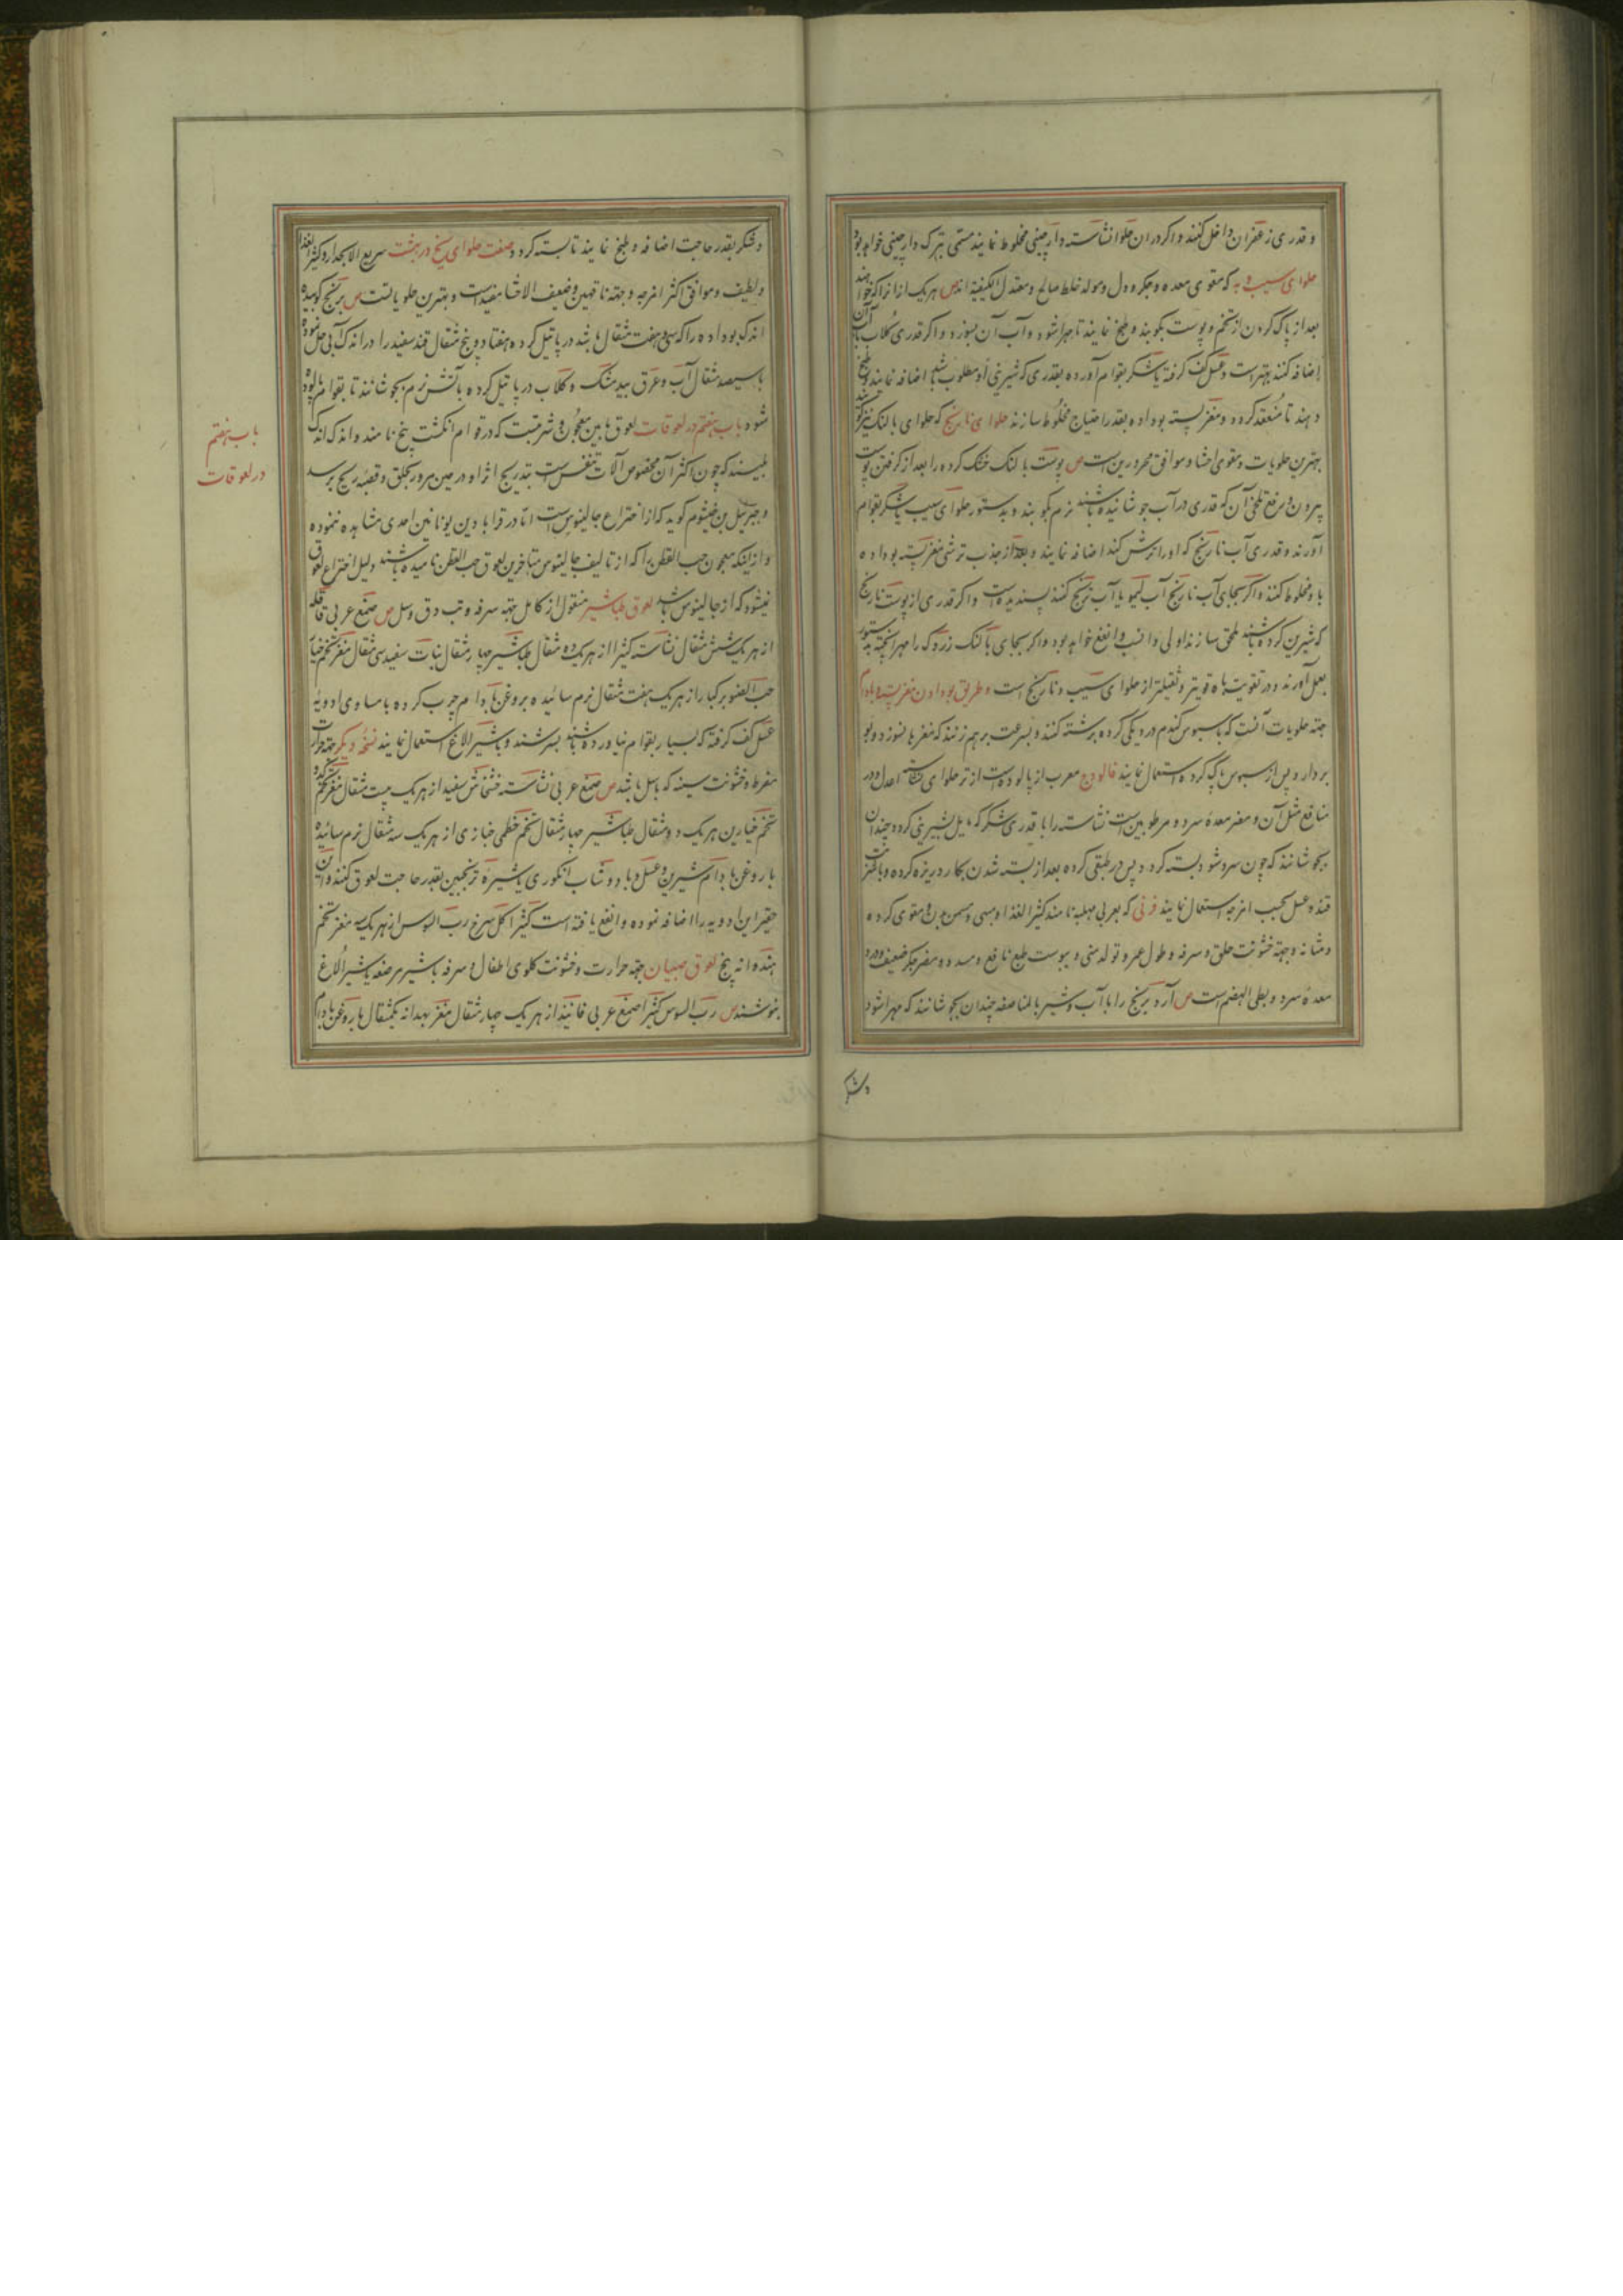 و قدری زعفران داخل کنند و اکر دران حلوا نشاسته دارچینی مخلوط نمایند مسمی بترک دارچینی خواهد بود
حلوای سیب و به که مقوی معده و جکر و دل و مولد خلط صالح و معتدل الکیفیه اند ص هریک ازانرا که خواهند
بعد از پاک کردن از تخم و پوست بکوبند و طبخ نمایند تا مهرا شود و آب آن بسوزد و اکر قدری کلاب بآن
اضافه کنند بهتر است و عسل کف کرفته یا شکر بقوام آورده بقدری که شیرینی او مطلوب باشد اضافه نمایند و طبخ
دهند تا منعقد کردد و مغز پسته بوداده بقدر احتیاج مخلوط سازند حلوای نارنج که حلوای بالنک نیز کویند
بهترین حلویات و مقوی احشا و موافق محرورین است ص پوست بالنک خشک کرده را بعد از کرفتن پوست
بیرون و رفع تلخی آن که قدری در آب جوشانیده باشند نرم بکوبند و بدستور حلوای سیب با شکر بقوام
آورند و قدری آب نارنج که او را ترش کند اضافه نمایند و بعد از جذب ترشی مغز پسته بوداده
با و مخلوط کنند و اکر بجای آب نارنج آب لیمو یا آب ترنج کنند پسندیده است و اکر قدری از پوست نارنج
که شیرین کرده باشند ملحق سازند اولی و انسب و انفع خواهد بود و اکر بجای بالنک زردک را مهرا پخته بدستور
بعمل آورند در تقویت باه قویتر و ثقیلتر از حلوای سیب و نارنج است و طریق بودادن مغز پسته و بادام
جهته حلویات آنست که با سبوس کندم در دیکی کرده برشته کنند و بسرعت برهم زنند که مغزها نسوزد و بو
بردارد و پس از سبوس پاک کرده استعمال نمایند فالودج معرب از پالوده است از تر حلوای نشاسته اعدل و در
منافع مثل آن و مضر معده سرد و مرطوبین است نشاسته را با قدری شکر که مایل بشیرینی کردد چندان
بجوشانند که چون سرد شود بسته کردد پس در طبقی کرده بعد از بسته شدن بکارد ریزه کرده و با شربت
قند و عسل بحسب امزجه استعمال نمایند فرنی که بعربی مهلبیه نامند کثیر الغذا و مبهی و مسمن بدن و مقوی کرده
و مثانه و جهته خشونت حلق و سرفه و طول عمر و تولد منی و یبوست طبع نافع و مسدد و مضر جکر ضعیف و درد
معده سرد و بطی الهضم است ص آرد برنج را با آب و شیر بالمناصفه چندان بجوشانند که مهرا شود
و شکر
و شکر بقدر حاجت اضافه و طبخ نمایند تا بسته کردد صفت حلوای یخ در بهشت سریع الانحدار و کثیر الغذا
و لطیف و موافق اکثر امزجه و جهته ناقهین و ضعیف الاحشا مفید است و بهترین حلویاتست ص برنج کوبیده
اندک بوداده را که سی و هفت مثقال باشد در پاتیل کرده هفتاد و پنج مثقال قند سفید را در اندک آبی حل نموده
با سیصد مثقال آب و عرق بیدمشک و کلاب در پاتیل کرده بآتش نرم بجوشانند تا بقوام پالوده
شود باب هفتم در لعوقات لعوق مابین معجون و شربتست که در قوام انکشت پیچ نامند و اندک اندک
لیسند که چون اکثر آن مخصوص آلات تنفس است بتدریج اثر او در حین مرور بحلق و قصبه ریه برسد
و جبرئیل بن بختیشوع کوید که از اختراع جالینوس است اما در قرابادین یونانیین احدی مشاهده ننموده
و از اینکه معجون حب القطن را که از تالیف جالینوس متاخرین لعوق حب القطن نامیده باشند دلیل اختراع لعوق
نمیشود که از جالینوس باشد لعوق طباشیر منقول از کامل جهته سرفه و تب دق و سل ص صمغ عربی قاقله
از هریک شش مثقال نشاسته کثیرا از هریک ده مثقال طباشیر چهار مثقال نبات سفید سی مثقال مغز تخم خیار
حب الصنوبر کبار از هریک هفت مثقال نرم سائیده بروغن بادام چرب کرده با مساوی ادویه
عسل کف کرفته که بسیار بقوام نیاورده باشند بسرشند و با شیر الاغ استعمال نمایند نسخه دیکر جهته حرارت
مفرط و خشونت سینه که با سل باشد ص صمغ عربی نشاسته خشخاش سفید از هریک بیست مثقال مغز تخم کدو
تخم خیارین هریک ده مثقال طباشیر چهار مثقال تخم خطمی خبازی از هریک سه مثقال نرم سائیده
با روغن بادام شیرین و عسل و با دوشاب انکوری یا شیره ترنجبین بقدر حاجت لعوق کنند و این
حقیر این ادویه را اضافه نموده و انفع یافته است کثیرا کل سرخ رب السوس از هریک سه مغز تخم
هندوانه پنج لعوق صبیان جهته حرارت و خشونت کلوی اطفال و سرفه با شیر مرضعه یا شیر الاغ
بنوشند ص رب السوس کثیرا صمغ عربی فانیذ از هریک چهار مثقال مغز بهدانه یکمثقال با روغن بادام
باب هفتم
در لعوقات